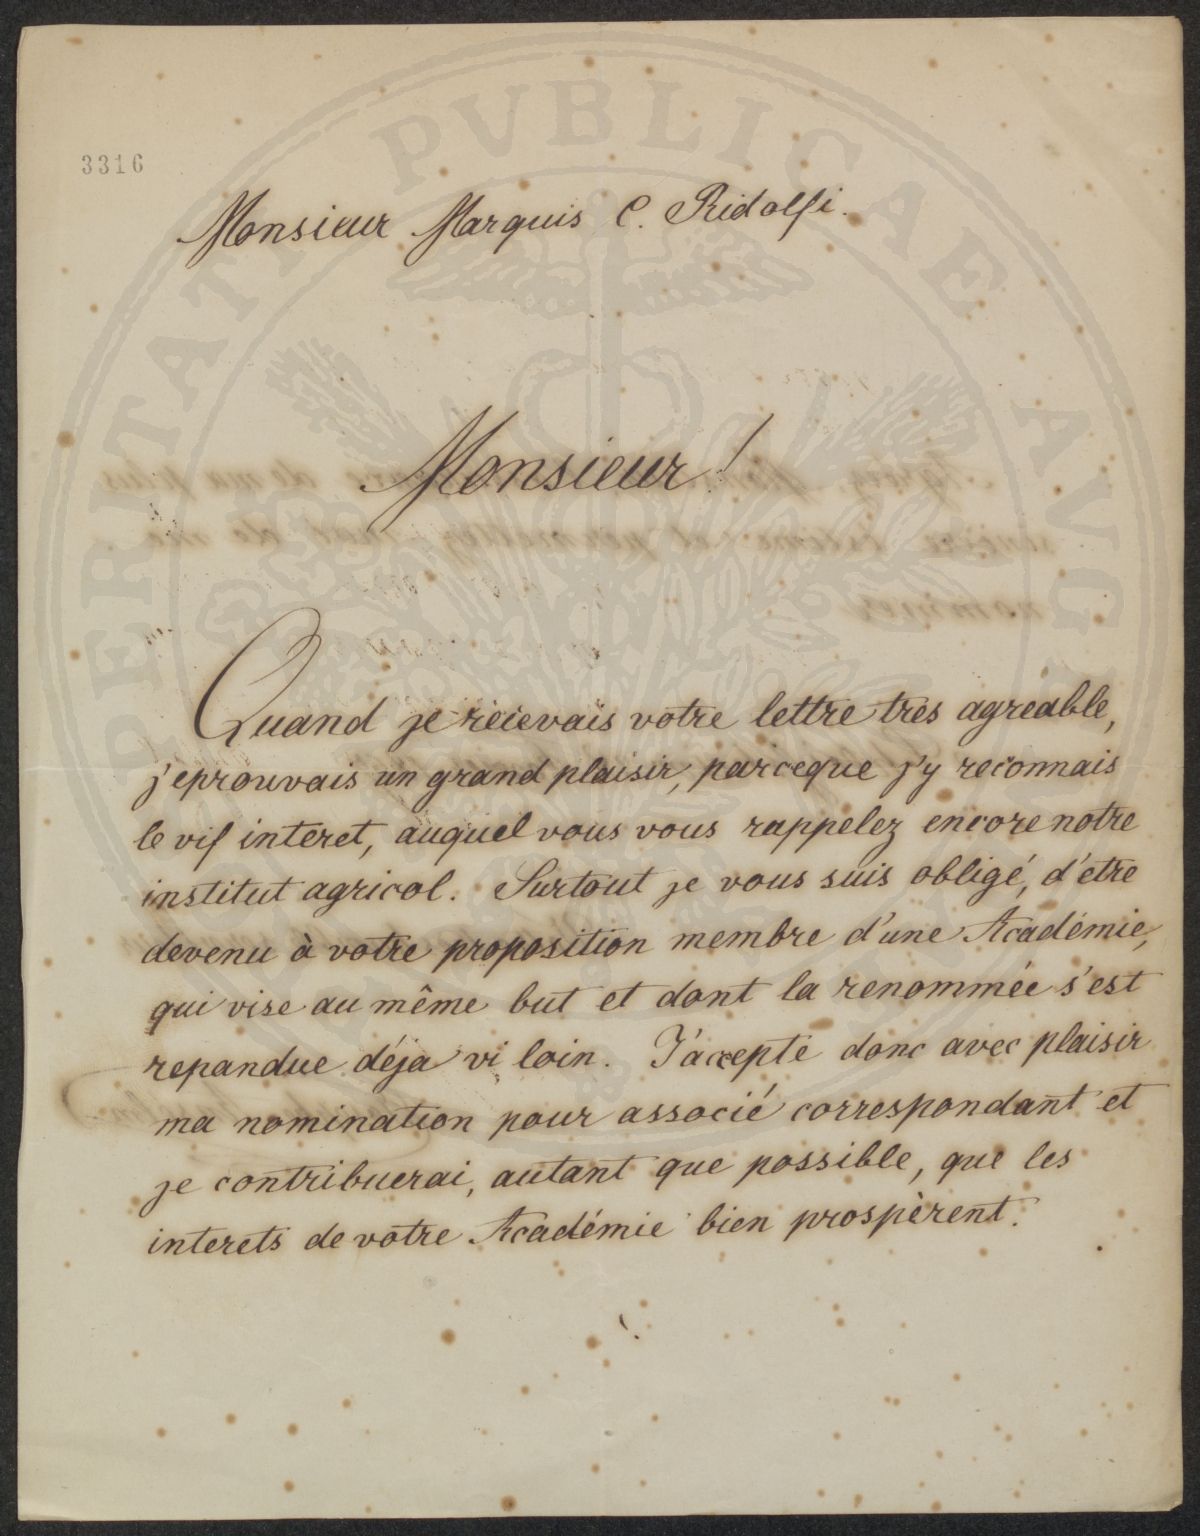 3316
Monsieur Marquis C. Ridolfi.
Monsieur!
Quand je recevais votre lettre très agréable,
j'eprouvais un grand plaisir, parceque j'y reconnais
le vif interet, auquel vous vous rappelez encore notre
institut agricol. Surtout je vous suis obligé, d'étre
devenu à votre proposition membre d'une Académie,
qui vise au même but et dont la renommée s'est
repandue déja vi loin. J'accepte donc avec plaisir
ma nomination pour associé correspondant et
je contribuerai, autant que possible, que les
interets de votre Académie bien prospèrent.